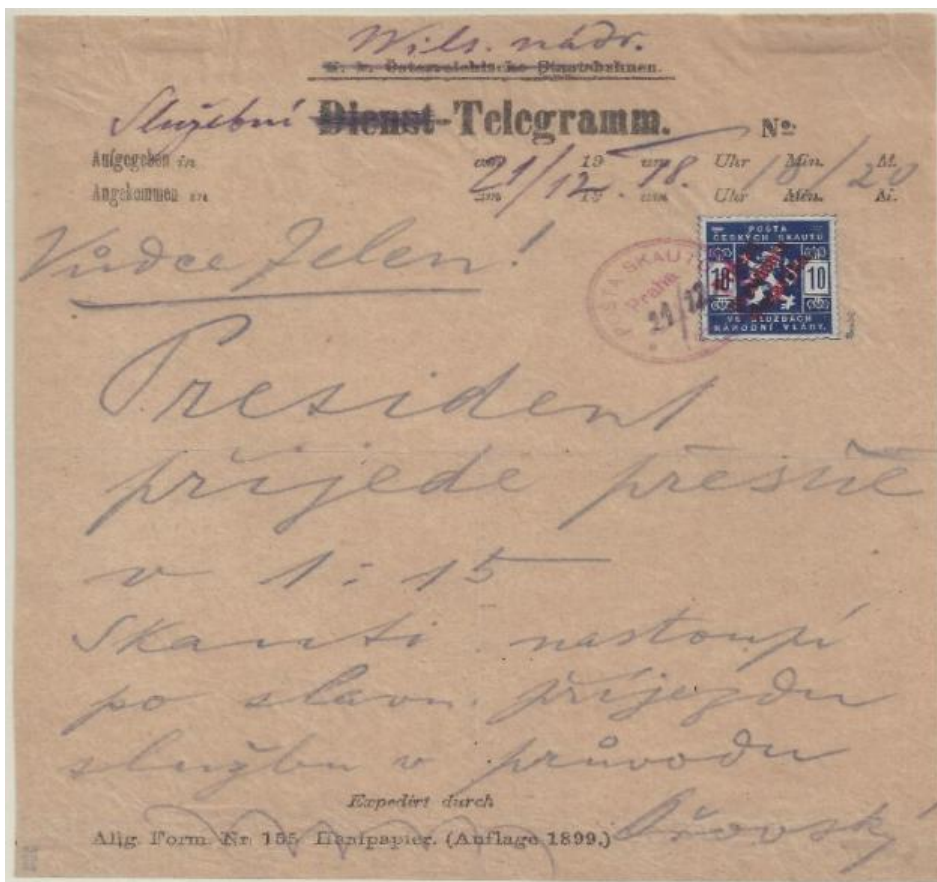 Wils. nádr.
K. k. Österreichische Staatsbahnen.
Služební Dienst-Telegramm. No:
Aufgegeben in am 19 um Uhr Min. M.
Angekommen in am 19 um Uhr Min. M.
21/12. 18. 10/20
Vůdce Jelen!
POŠTA
ČESKÝCH SKAUTŮ
10 10
VE SLUŽBÁCH
NÁRODNÍ VLÁDY.
POŠTA SKAUTŮ
Praha
21/12
President
přijede přesně
v 1:15
Skauti nastoupí
po slavn. příjezdu
službu v průvodu
Expedirt durch
Allg. Form. Nr. 155 Hanfpapier. (Auflage 1899.)